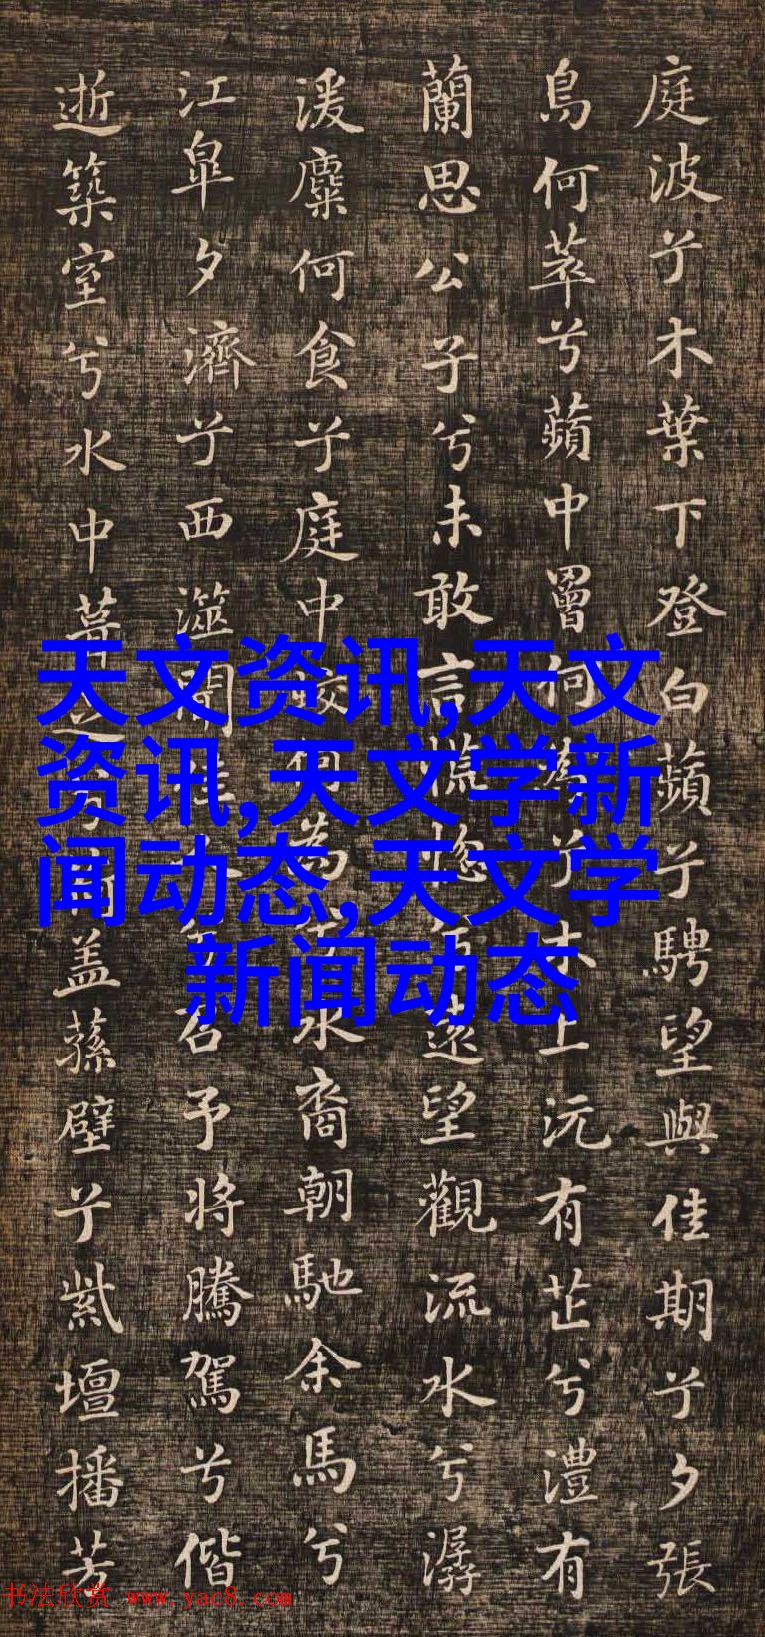 庭波兮木葉下登白蘋兮騁望與佳期兮夕張
鳥何萃兮蘋中罾何為兮木上沅有芷兮澧有
蘭思公子兮未敢言慌惚兮遠望觀流水兮潺
湲麋何食兮庭中蛟何為兮水裔朝馳余馬兮
江皐夕濟兮西澨聞佳人兮召予將騰駕兮偕
逝築室兮水中葺之兮荷蓋蓀壁兮紫壇播芳
天文资讯,天文
资讯,天文学新
闻动态,天文学
新闻动态
书法欣赏 www.yac8.com